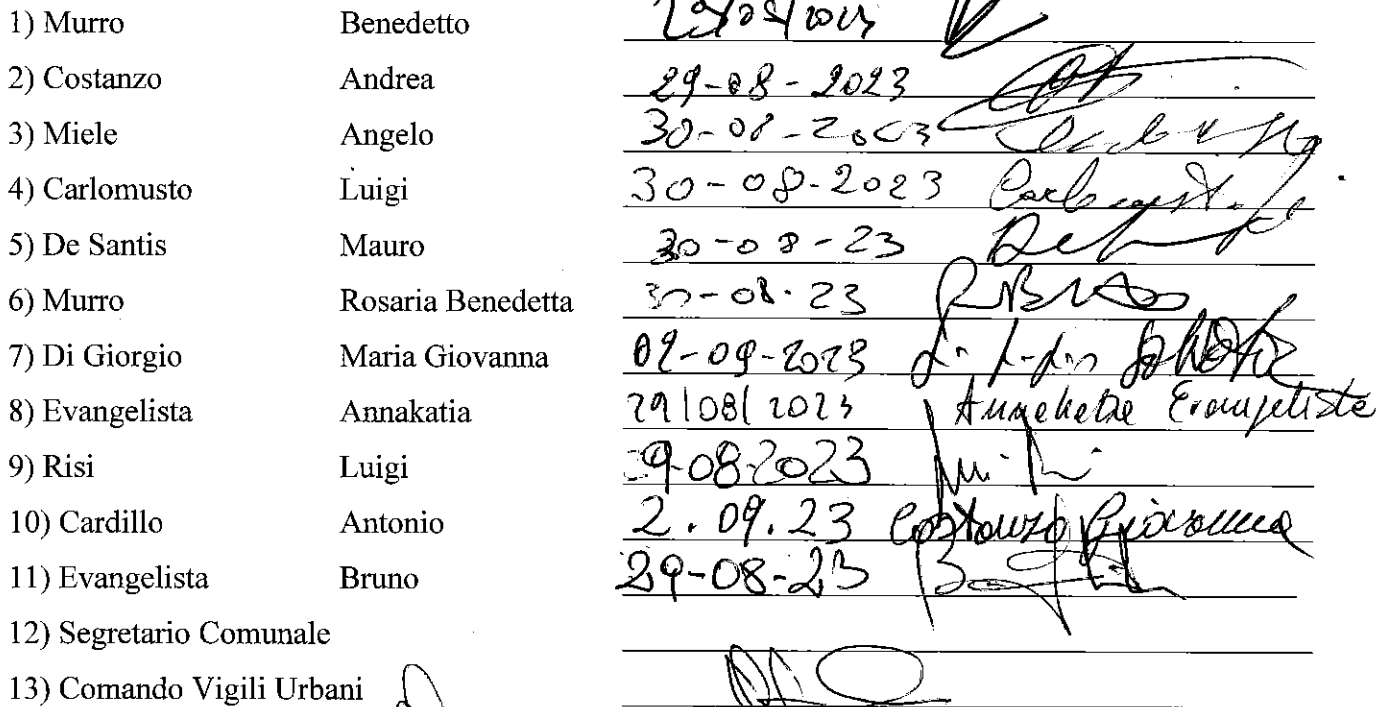 1) Murro Benedetto
2) Costanzo Andrea 29-08-2023
3) Miele Angelo 30-08-2023
4) Carlomusto Luigi 30-08-2023 Carlomusto
5) De Santis Mauro 30-08-23
6) Murro Rosaria Benedetta 30-08.23
7) Di Giorgio Maria Giovanna 02-09-2023
8) Evangelista Annakatia 29/08/2023 Annakatia Evangelista
9) Risi Luigi 9-08-2023
10) Cardillo Antonio 2.09.23 Costanzo Giovanna
11) Evangelista Bruno 29-08-23
12) Segretario Comunale
13) Comando Vigili Urbani